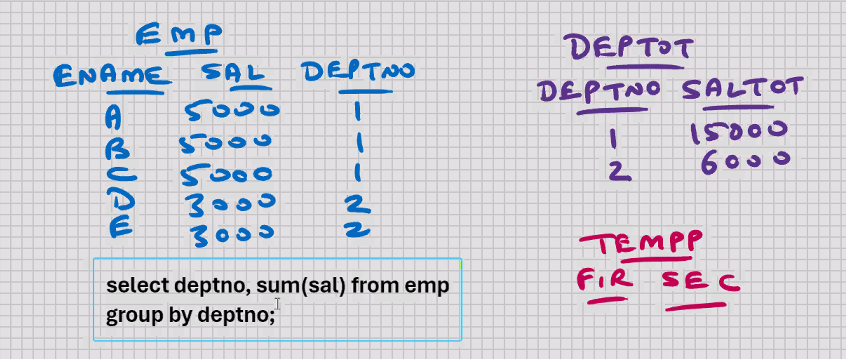 EMP
ENAME SAL DEPTNO
A 5000 1
B 5000 1
C 5000 1
D 3000 2
E 3000 2
select deptno, sum(sal) from emp
group by deptno;
DEPTOT
DEPTNO SALTOT
1 15000
2 6000
TEMPP
FIR SEC